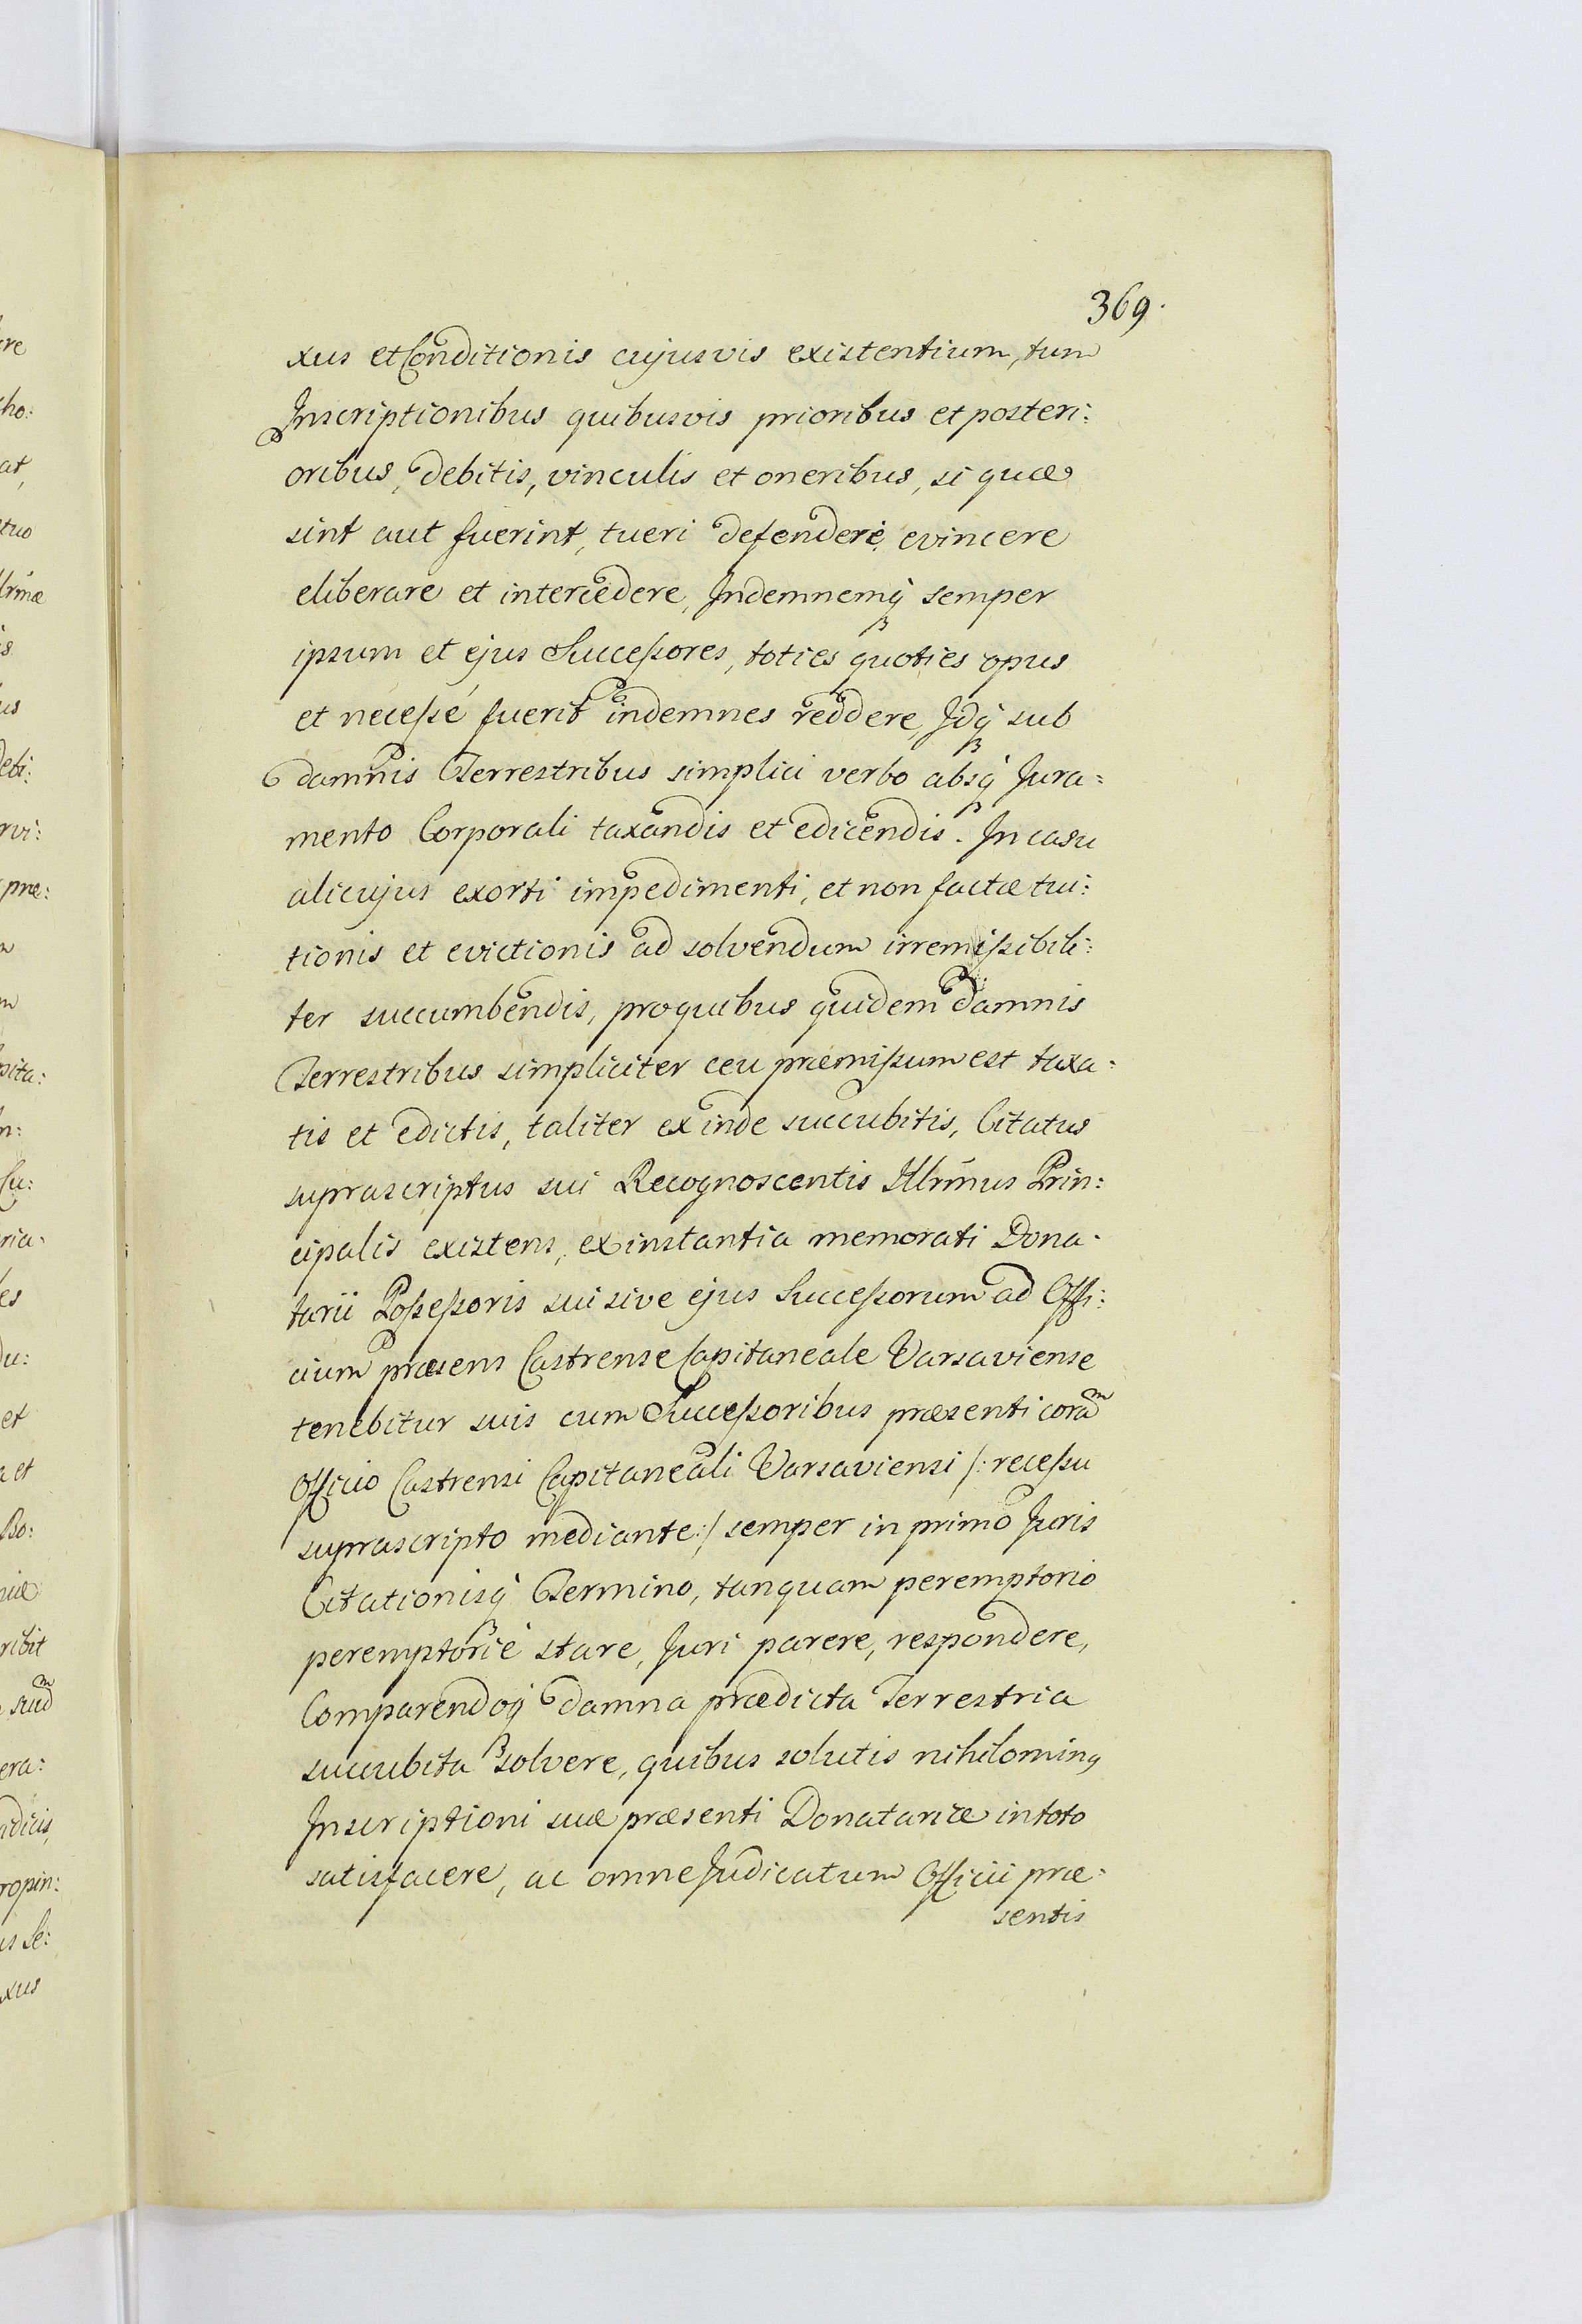 369.
xus et Conditionis cujusvis existentium, tum
Inscriptionibus quibusvis prioribus et posteri:
oribus, debitis, vinculis et oneribus, si quæ
sint aut fuerint, tueri defendere, evincere
eliberare et intercedere, Indemnemq́ semper
ipsum et ejus Succeßores, toties quoties opus
et neceßé fuerit indemnes reddere, Idq́ sub
damnis Terrestribus simplici verbo absq́ Jura:
mento Corporali taxandis et edicendis. In casu
alicujus exorti impedimenti, et non factæ tui:
tionis et evictionis ad solvendum irremißibili:
ter succumbendis, pro quibus quidem damnis
Terrestribus simpliciter ceu præmißum est taxa:
tis et edictis, taliter ex inde succubitis, Citatus
suprascriptus sui Recognoscentis Illrm̃us Prin:
cipalis existens, ex instantia memorati Dona:
tarii Poßeßoris sui sive ejus Succeßorum ad Offi:
cium præsens Castrense Capitaneale Varsaviense
tenebitur suis cum Succeßoribus præsenti coram
Officio Castrensi Capitaneali Varsaviensi /: receßu
suprascripto mediante :/ semper in primo Juris
Citationisq́ Termino, tanquam peremptorio
peremptorié stare, Juri parere, respondere,
Comparendoq́ damna prædicta Terrestria
succubita solvere, quibus solutis nihilominꝯ
Inscriptioni suæ præsenti Donatariæ in toto
satisfacere, ac omne Judicatum Officii præ:
sentis